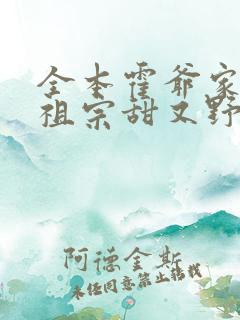 全本霍爷家
祖宗甜又野
阿德金斯
未经同意禁止转载